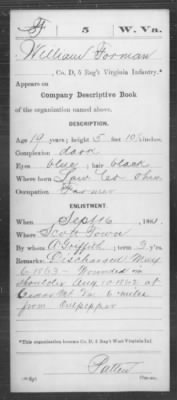 F 5 W. Va.
William Forman
, Co. D, 5 Reg't Virginia Infantry.*
Appears on
Company Descriptive Book
of the organization named above.
DESCRIPTION.
Age 19 years; height 5 feet 10 inches.
Complexion dark
Eyes blue; hair black
Where born Law Co. Ohio
Occupation Farmer
ENLISTMENT.
When Sept. 6, 1861.
Where Scott Town
By whom A Griffith; term 3 y'rs.
Remarks: Discharged May
6 1863 - Wounded in
shoulder Aug 10 1862 at
Va 6 miles
from Culpepper
*This organization became Co. D, 5 Reg't West Virginia Inf.
Patten
Copyist.